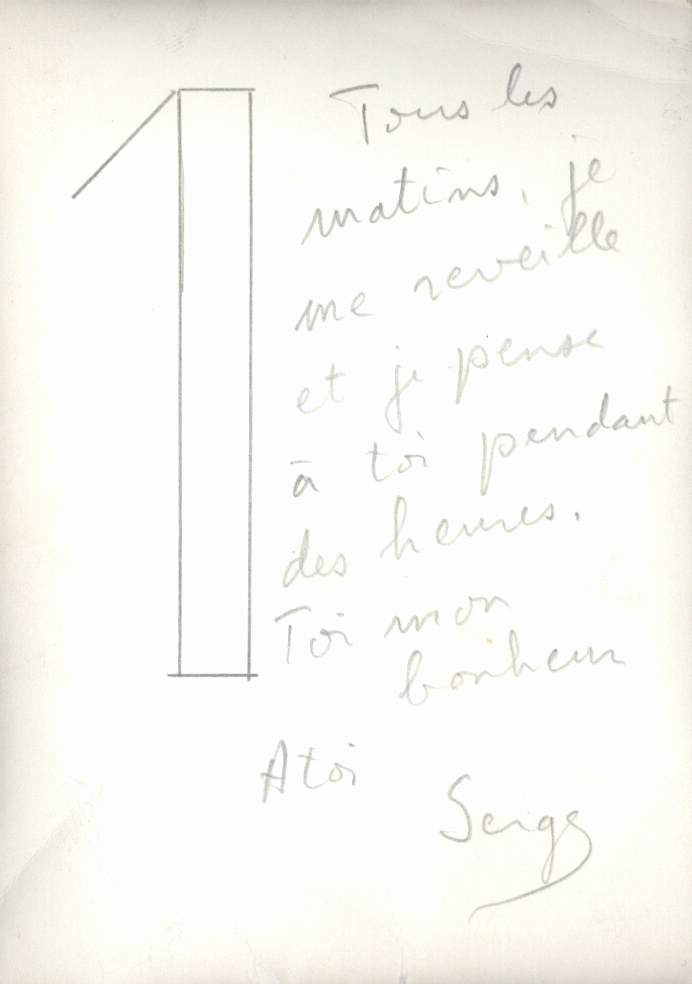 1
Tous les
matins, je
me reveille
et je pense
à toi pendant
des heures.
Toi mon
bonheur
A toi
Serge